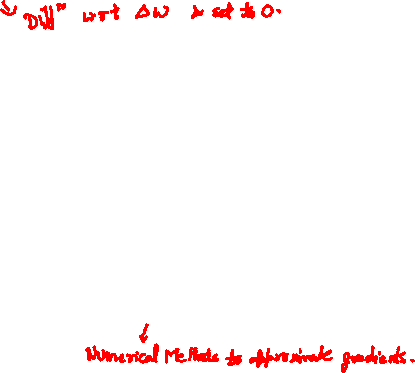 Diffⁿ wrt Δw & set to 0.
Numerical Methods to approximate gradients.